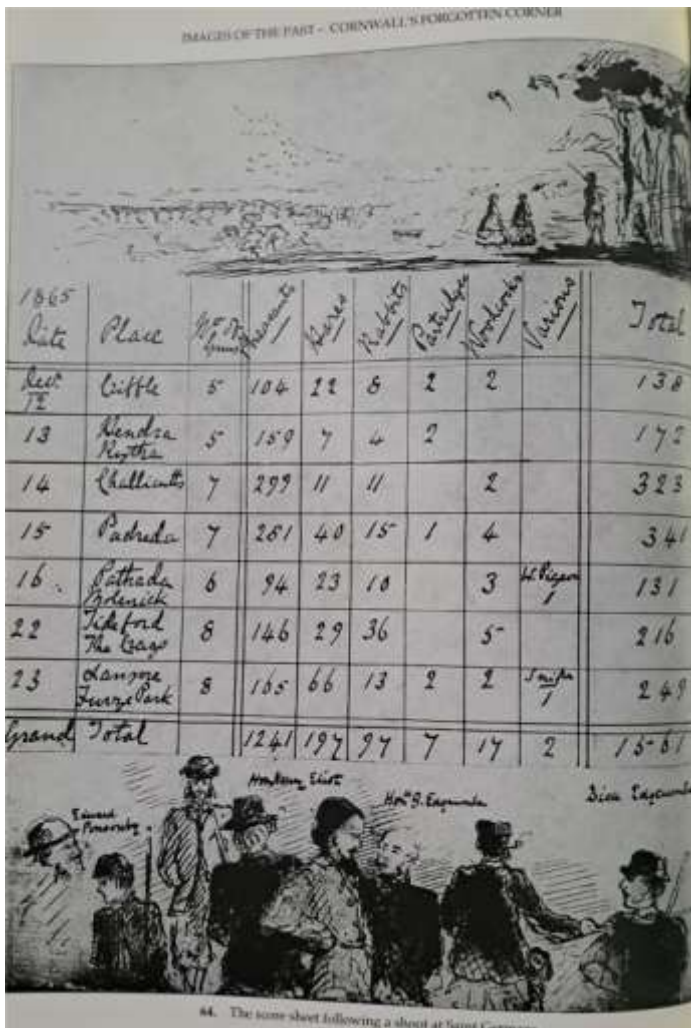 IMAGES OF THE PAST – CORNWALL'S FORGOTTEN CORNER
1865 Date Place No. of Guns Pheasants Hares Rabbits Partridges Woodcocks Various Total
Decr 12 Cribble 5 104 22 8 2 2 138
13 Hendra 5 159 7 4 2 172
14 7 299 11 11 2 323
15 Padreda 7 281 40 15 1 4 341
16 Pathada Molenick 6 94 23 10 3 W. Pigeon 1 131
22 Tideford The Crags 8 146 29 36 5 216
23 Furze Park 8 165 66 13 2 2 Snipe 1 249
Grand Total 1241 197 97 7 17 2 1561
Edward Ponsonby
Eliot
Edgcumbe
Edgcumbe
64. The score sheet following a shoot at Saint